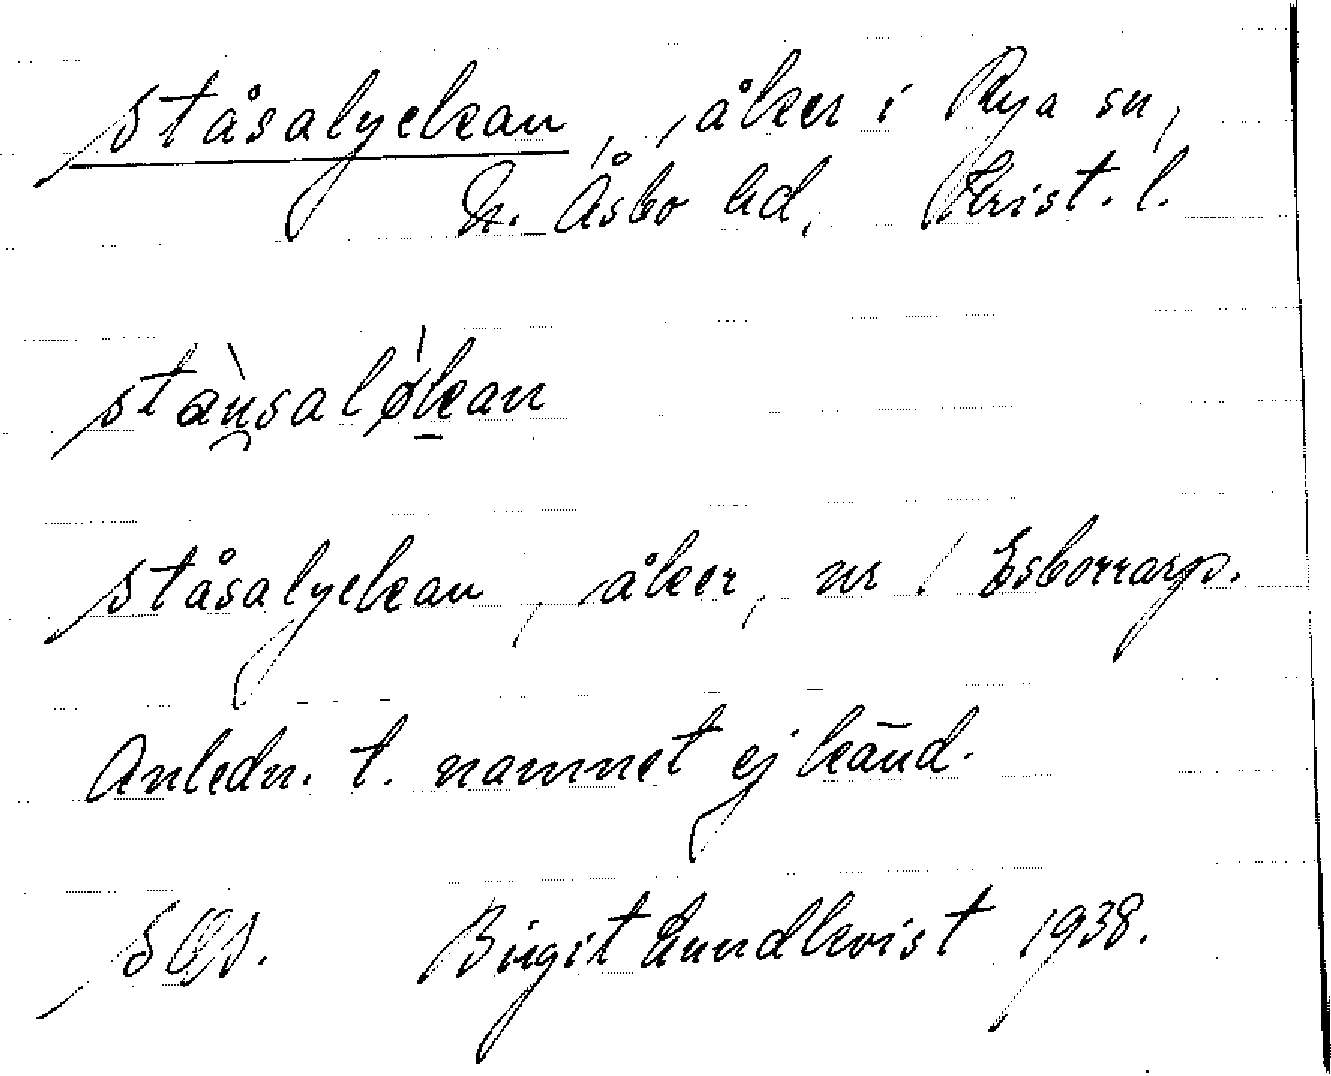 Ståsalyckan, åker i Rya sn,
N. Åsbo hd, Krist. l.
stàu̯salø̀kan
Ståsalyckan, åker, nr 1 Esborrarp.
Anledn. t. namnet ej känd.
Birgit Lundkvist 1938.